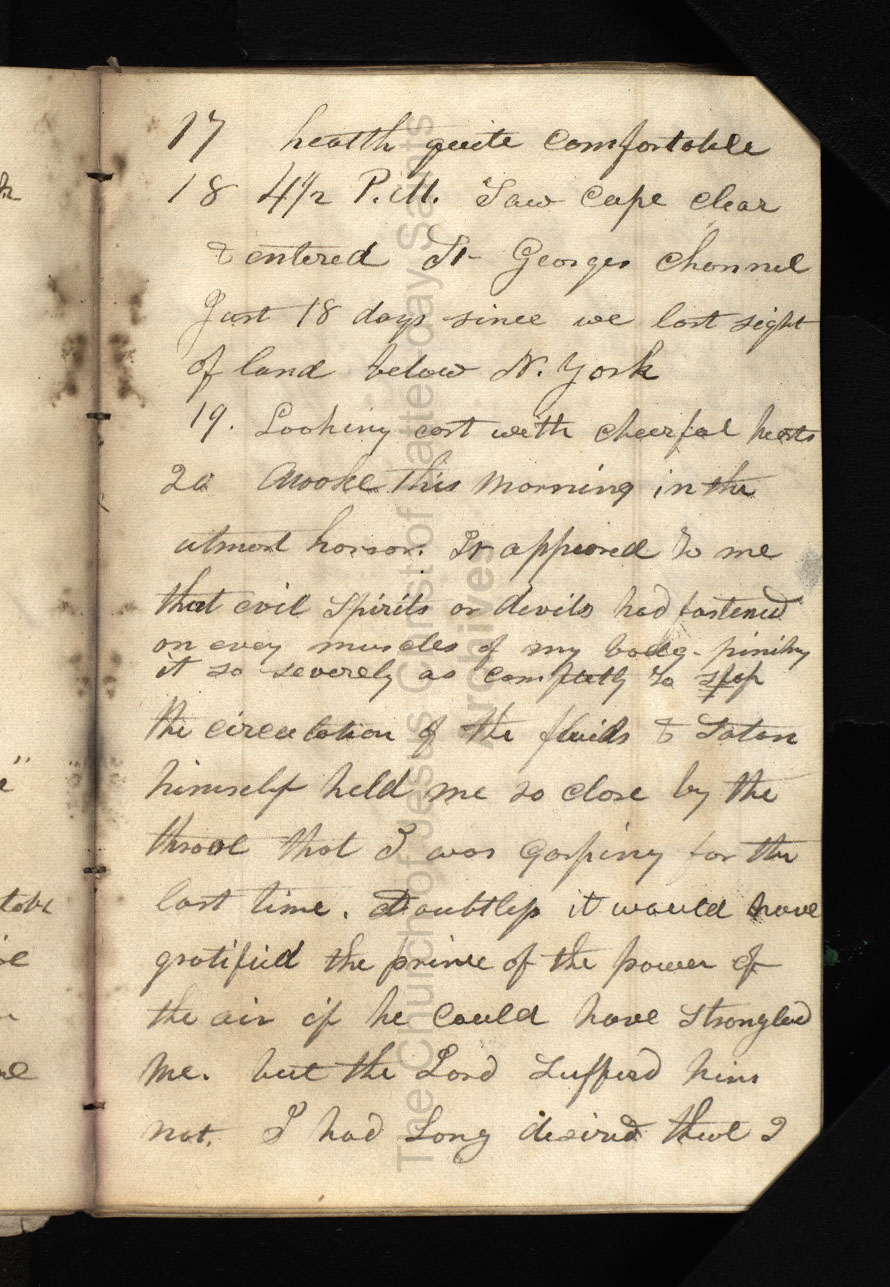 17 health quite comfortable
18 4 1/2 P.M. Saw Cape Clear
& entered St Georges Channel
Just 18 days since we lost sight
of land below N. York
19. Looking east with cheerful hearts
20 Awoke this morning in the
utmost horror. It appeared to me
that evil spirits or devils had fastened
on evey muscles of my body - pinihg
it so severely as completly to stop
the circulation of the fluids & Satan
himself held me so close by the
throat that I was gasping for the
last time. Doubtless it would have
gratified the prince of the power of
the air if he could have strangled
me. but the Lord sufferd him
not. I had long desired that I
The Church of Jesus Christ of Latter-day Saints
Archives